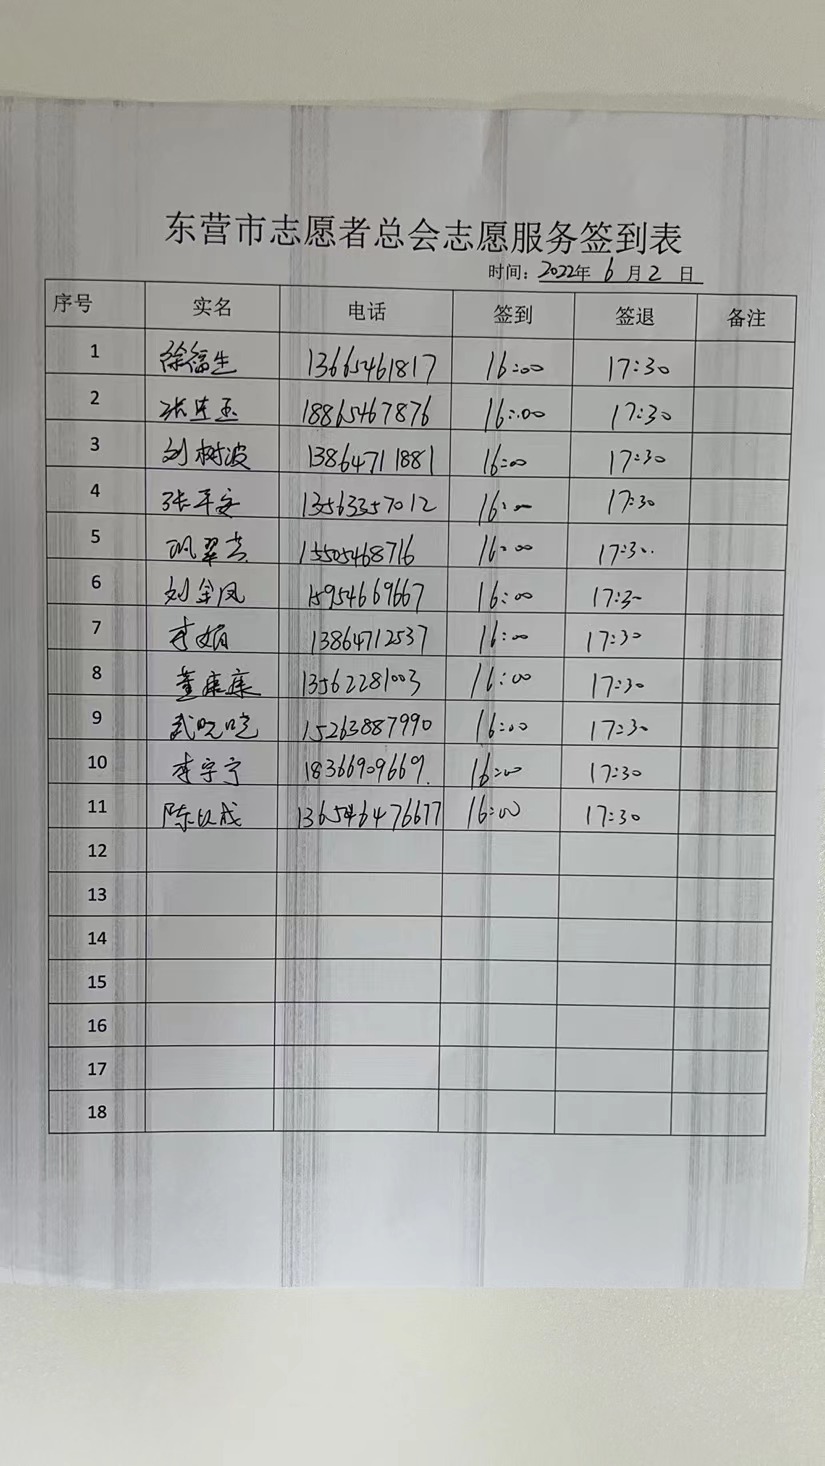 东营市志愿者总会志愿服务签到表
时间：2022年 6 月 2 日
序号 实名 电话 签到 签退 备注
1 徐福生 13665461817 16:00 17:30
2 张连玉 18865467876 16:00 17:30
3 刘树波 13864711881 16:00 17:30
4 张平安 13563357012 16:00 17:30
5 15505468716 16:00 17:30
6 刘金凤 15954669667 16:00 17:30
7 李娟 13864712537 16:00 17:30
8 董康康 13562281003 16:00 17:30
9 武晓晓 15263887990 16:00 17:30
10 李宇宁 18366909669 16:00 17:30
11 16:00 17:30
12
13
14
15
16
17
18